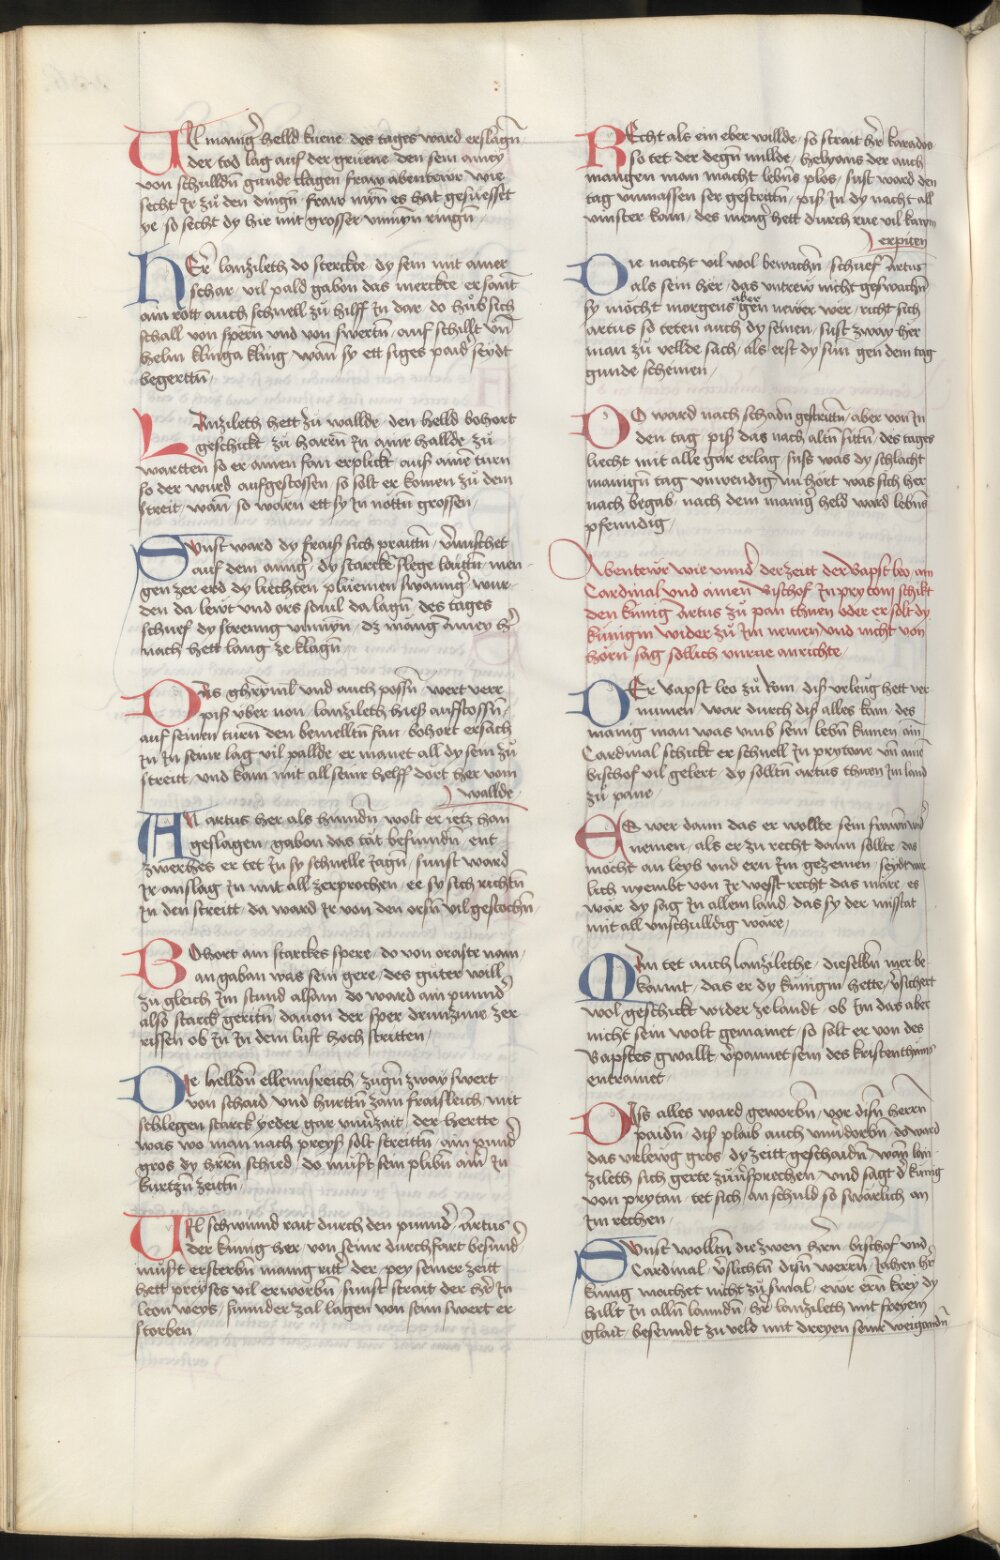 Vil manig̉ helld kuene des tages ward erslagn̄
der tod lag auf der grüene den sein amey
von schulldn̄ gunde clagen fraw abenteẅr wie
secht Ir zu den dingn̄ fraw mÿn̄ es hat gefuesset
ye so secht dy hie mit grosser vnmÿn ringn̄
HEr̉ lanzileth do sterckte dy sein mit ainer
schar vil pald gabon das merckte er sant
ain rott auch schnell zu hilff In dar do hub sich
schall von spern̄ und von swertn̄ auf schillt vn̄
helm klinga kling wan̄ sy ett siges paid seydt
begertn̄
LAnzileth hett zu wallde den helld bohort
geschickt zu harren̄ In ainr hallde zu
wartten so er ainen fan erplickt auf aine͂ turn
so der wurd aufgestossen so solt er komen zu dem
streit wan̄ so warn̄ ett sy In nottn̄ grossen
SUnst ward dy frais sich praittn̄ v̉mischet
auf dem annger dy starcke slege laittn̄ men
gen zer erd dy liechten plüemen swannger wur
den da lewt und ors sovil da lagn̄ des tages
schuef dy streinng vnmÿn dz mang̉ amey h̉
nach hett lanng ze klagn̄
DEs ghrÿml und auch possn̄ wert verr
pis vber non lanzileth hies auffstossn̄
auf seinen turn̄ den bemelltn̄ fan bohort ersach
In In seiner lag vil pallde er manet all dy sein zu
streitt und kam mit all seiner helff dort her vom
wallde
AN artus her als hinndn̄ wolt er iecz han
geslagen gabon das tät befinndn̄ ent
zwerhes er tet In sy schnelle Iagn̄ sunst ward
Ir anslag In mit all zerprochen ee sy sich richtn̄
In den streitt da ward Ir von den orsn̄ vil gestochn̄
BOhort ain starckes spere do von oraste nam
an gaban was sein gere des guter will
zu gleich Im stund allsam do ward ain punnd̉
also starck geritn̄ davon der sper drumzune zer
rissen ob In In dem lufft hoch stritten
DIe helldn̄ ellennsreich zugn̄ zway swert
von schaid und hurttn̄ zam fraisleich mit
schlegen starck yeder gar vnu̍zait der hertte
was wo man nach preyss solt streittn̄ ain pund̉
gros dy hern̄ schied do müst sein plibn̄ ain̉ In
kurtzn̄ zeittn̄
VIl schwinnd rait durch den punnd̉ Artus
der kunig her von seiner durchfart besund̉
müst ersterbn̄ manig ritt̉ der pey seiner zeitt
hett preyses vil erworbn̄ sunst strait der her̉ In
leon weys sunnder zal lagen von sein swert er
storben
REcht als ein eber willde so strait her̉ karados
so tet der degn̄ millde helyans der auch
mangen man macht lebn̄s plos sust ward den
tag vnmassen ser gestrittn̄ piss In dy nacht all
vinster kam des meng̉ hett durch rue vil kaum
erpiten
DIe nacht vil wol bewachn̄ schuef Artus
als sein her das untrew nicht geswachn̄
sy mocht morgens aber gen newer wer richt sich
artus so teten auch dy seinen sust zway her
man zu vellde sach als erst dy sun̄ gen dem tag
gunde scheinen
DO ward nach schadn̄ gestrittn̄ aber von In
den tag piss das nach altn̄ sittn̄ des tages
liecht mit alle gar erlag suss was dy schlacht
manign̄ tag vnwendig nu hört was sich her
nach begab nach dem manig̉ held ward lebn̄s
pfenndig
Abenteẅr wie vnnd̉ der zeitt der Bapst leo ain
Cardinal und ainen Bischof In prytony schikt
den kunig Artus zu pan thuen oder er solt dy
künigin wider zu Im nemen und nicht von
hörn sag sollich vnrue anrichte
DEr Bapst leo zu Rom dis vrleug hett ver
numen war durch diss alles kam des
manig man was vmb sein lebn̄ kumen ain
Cardinal schickt er schnell In prytone vn̄ aine͂
bischof vil gelert dy solltn̄ artus thuen Im land
zu pane
ES wer dann das er wollte sein frawen wid̉
nemen als er zu recht dann sollte das
möcht an leyb und ern Im gezemen seydt war
lich nyembt von Ir wesst recht das märe es
wär dy sag In allem land das sy der misstat
mit all vnschulldig wäre
IM tet auch lanzilethe dieselbn̄ mer be
kannt das er dy künigin hette v̉sichert
wol geschickt wider ze landt ob Im das aber
nicht sein wolt gemainet so solt er von des
Bapstes gwallt v̉pannet sein des kristenthums
entrainet
DIss alles ward geworbn̄ vor disn̄ herrn̄
paidn̄ diss plaib auch vnu̍dorbn̄ do ward
das vrlewg gros dy zeitt geschaidn̄ wan̄ lan
zileth sich gerte zuu̍sprechen und sagt d̉ künig
von prytan tet sich an schuld so swärlich an
Im rechen
SUnst wolltn̄ die zwen hern̄ bischof und
Cardinal v̉slichtn̄ disn̄ werrn̄ Jahen her̉
künig machet nicht zu smal ewr ern̄ krey dy
hillt In alln̄ lanndn̄ her̉ lanzileth mit freyem
glait besenndt zu veld mit dreyen seiner weiganndn̄